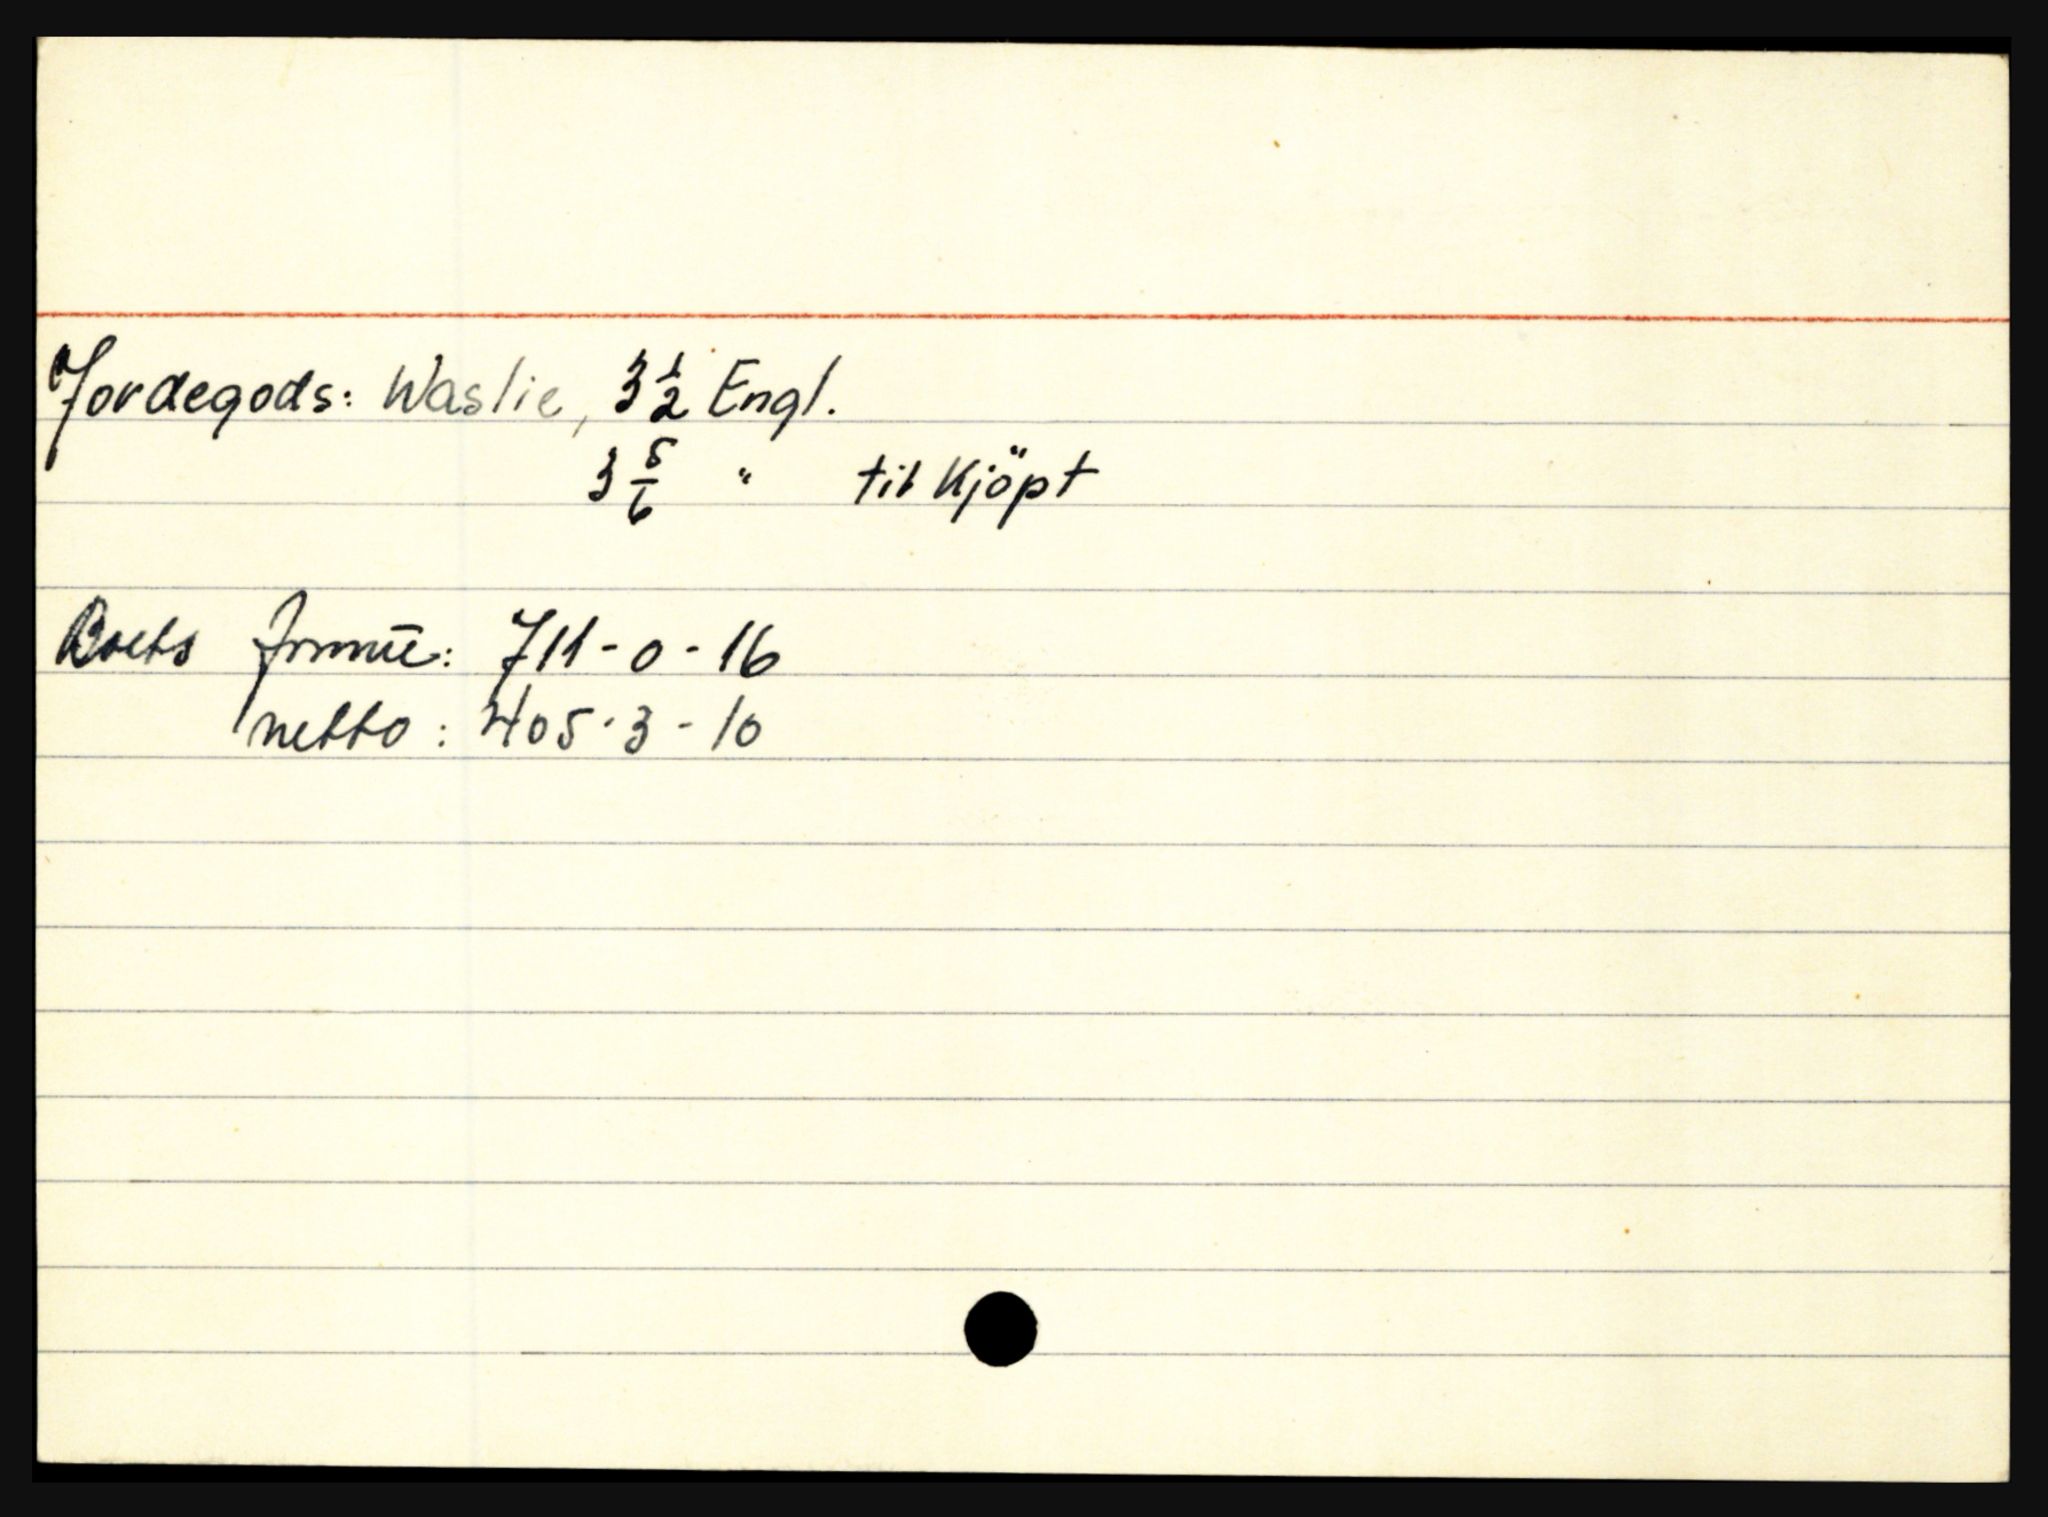 Jordegods: Waslie, 3 1/2 Engl.
3 5/6 " til Kjöpt
Boets formūe: 711-0-16
netto: 405-3-10